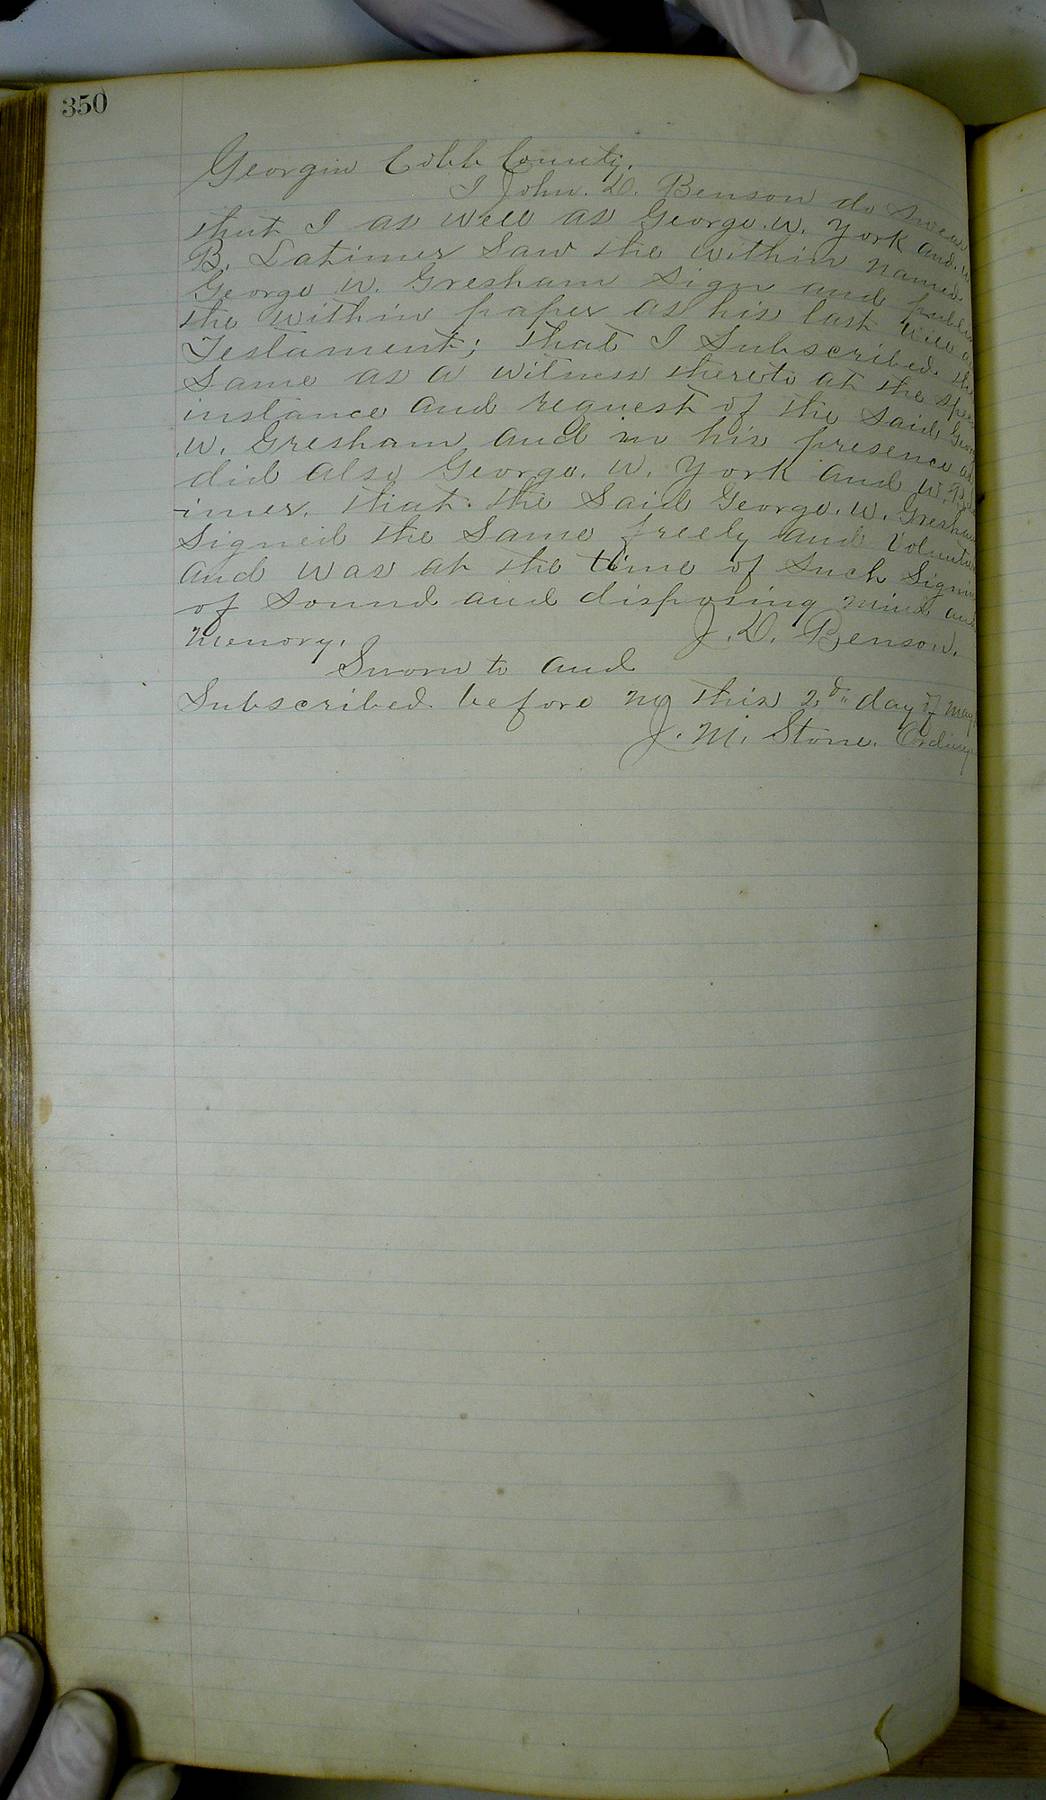 350
Georgia Cobb County.
I John. D. Benson do swear
that I as well as George. W. York and. W.
B. Latimer Saw the within named
George W. Gresham Sign and publish
the within paper as his last will
Testament; that I Subscribed the
Same as a witness thereto at the
instance and request of the Said
W. Gresham and in his presence
did also George. W. York and W. B.
imer. that the Said George. W. Gresham
Signed the Same freely and
and was at the time of Such
of Sound and disposing mind and
memory. J. D. Benson.
Sworn to and
Subscribed before me this 2d. day of May
J. M. Stone. Ordinary